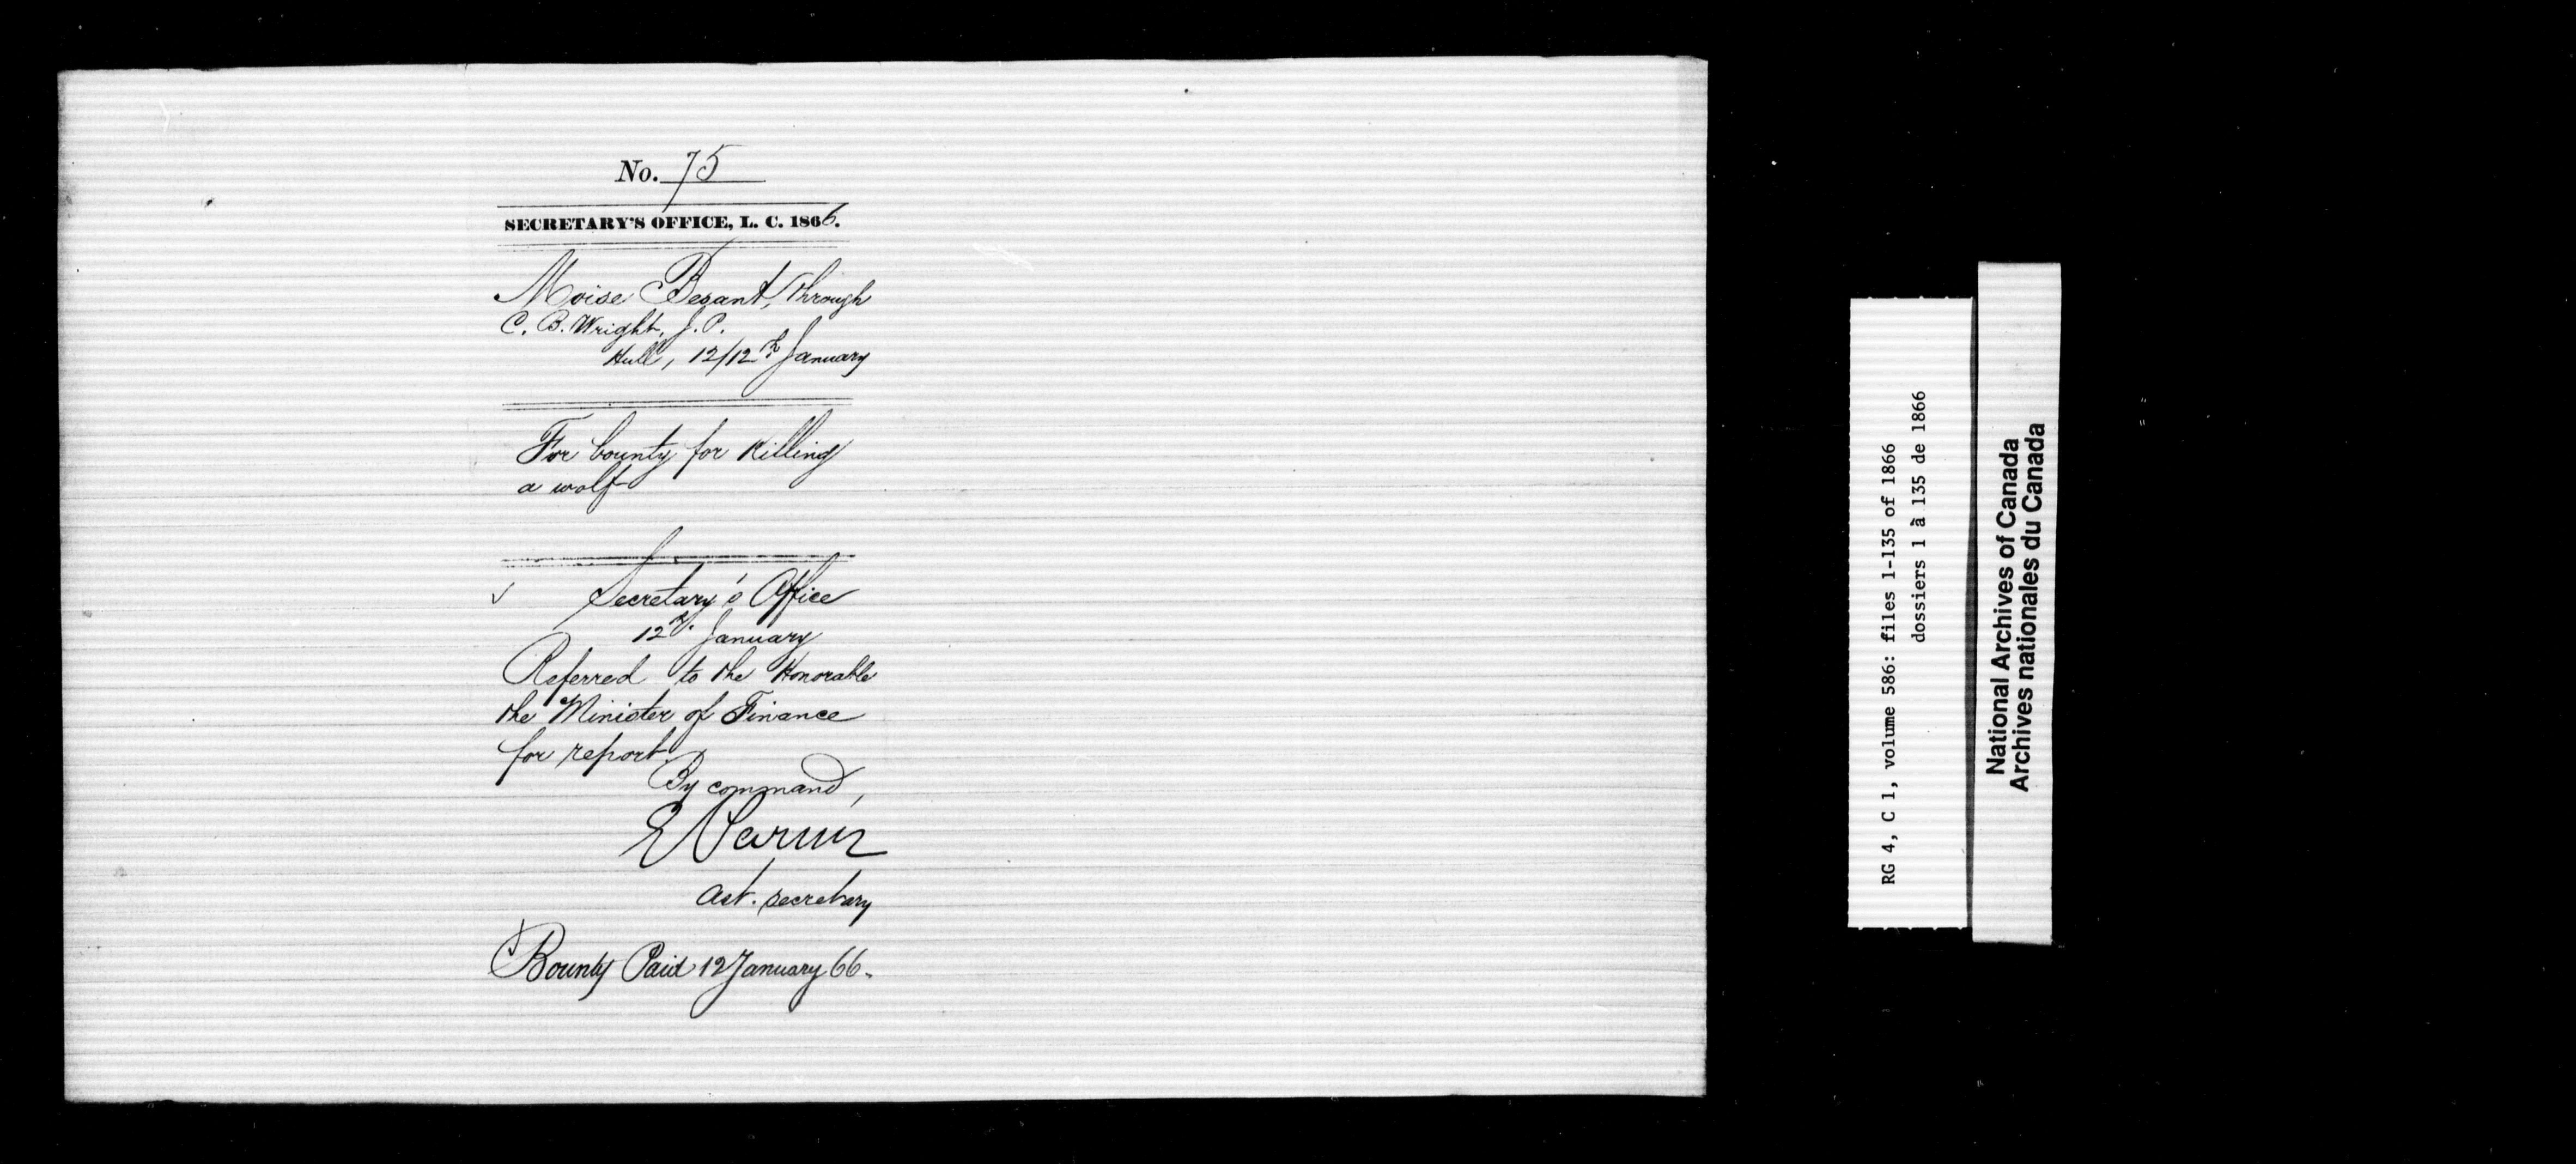 No. 75
SECRETARY'S OFFICE, L. C. 1866.
Moise Bezant, through
C. B. Wright, J. P.
Hull, 12/12th January
For bounty for killing
a wolf
Secretary's Office
12th January
Referred to the Honorable
the Minister of Finance
for report.
By command,
E Parent
Ast. secretary
Bounty Paid 12 January 66.
RG 4, C 1, volume 586: files 1-135 of 1866
dossiers 1 à 135 de 1866
National Archives of Canada
Archives nationales du Canada